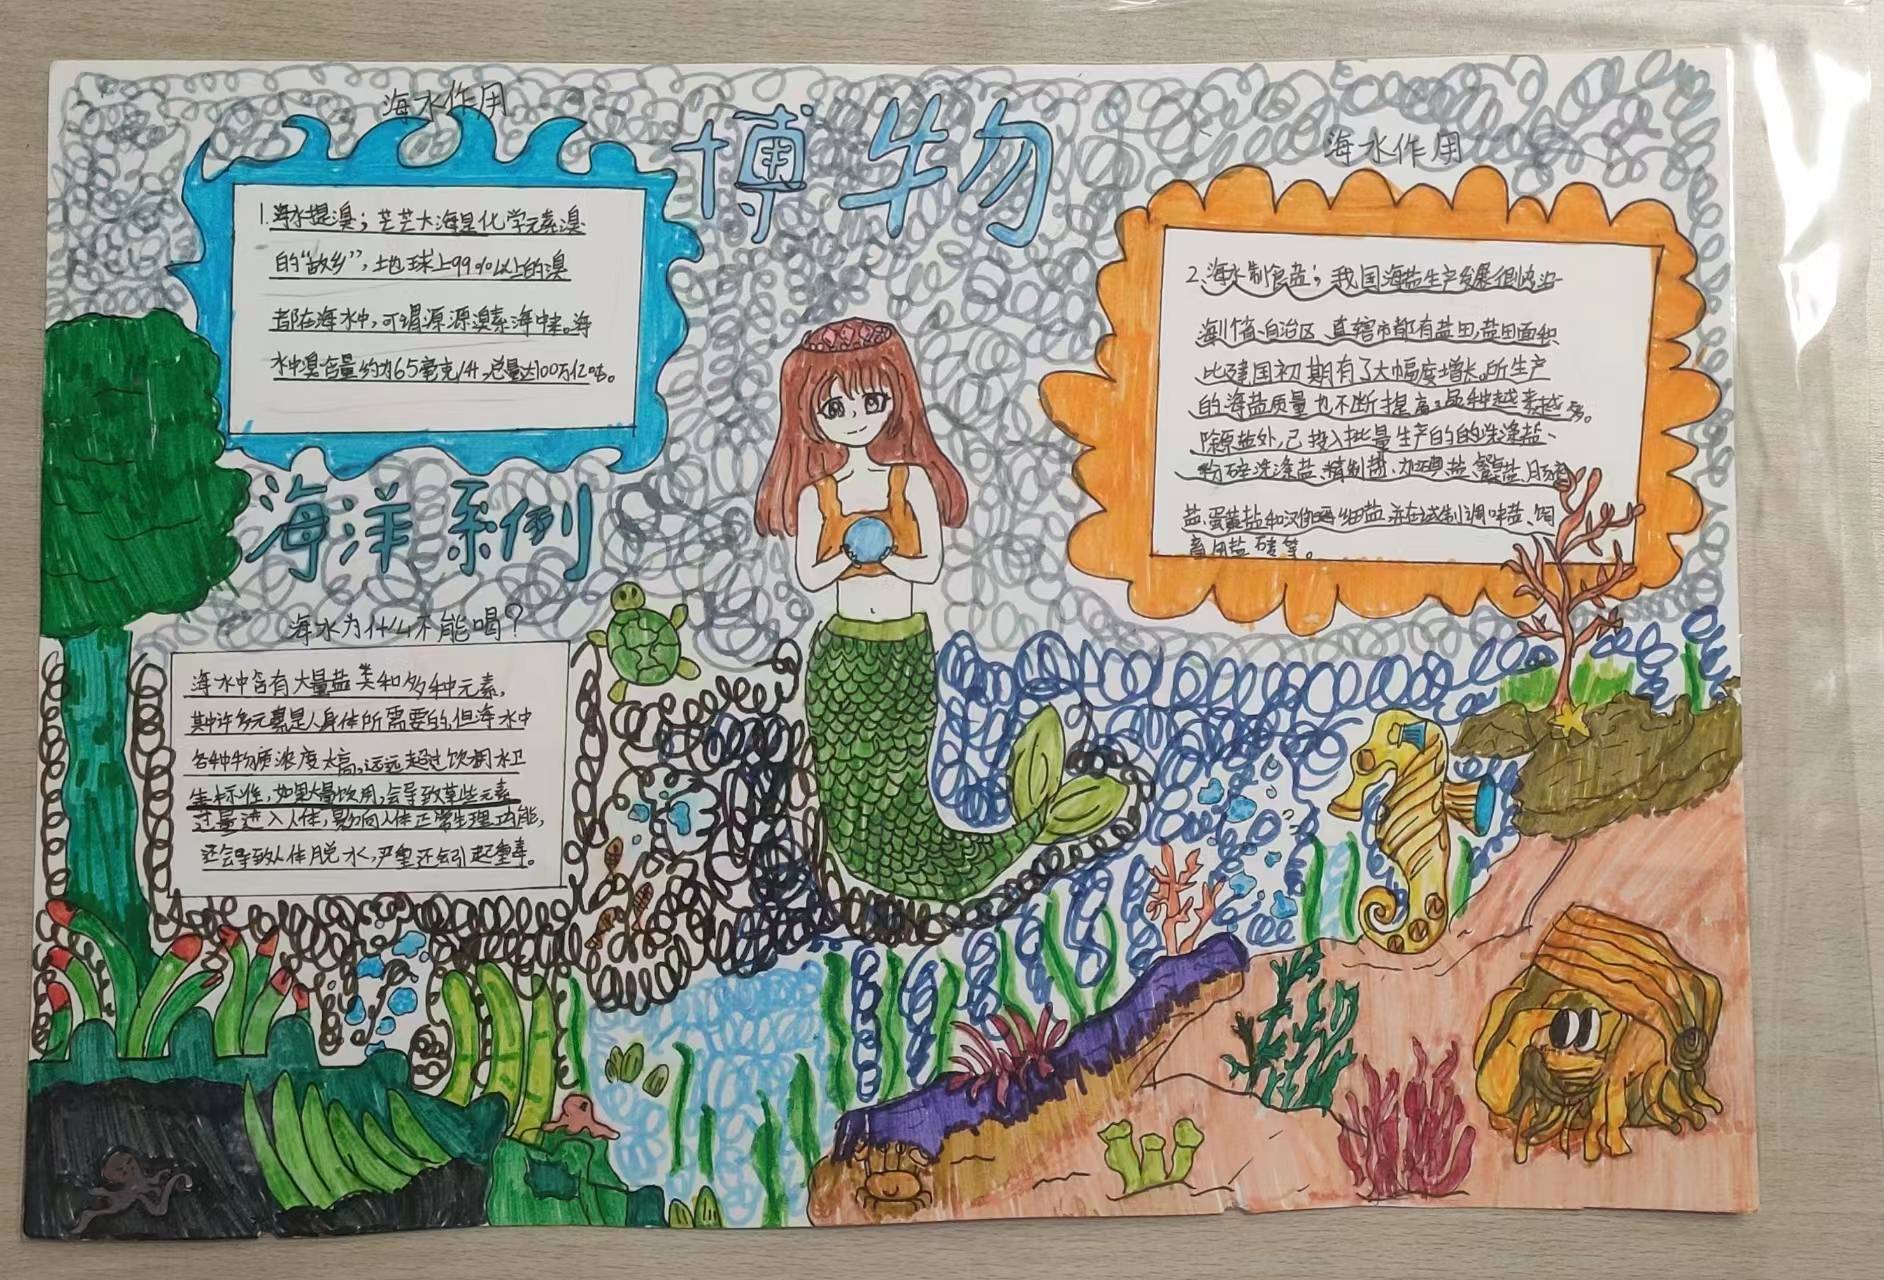 海水作用
博物
海水作用
1.海水提溴；芒芒大海是化学元素溴
的“故乡”，地球上99%以上的溴
都在海水中，可谓源源溴素海中来。海
水中溴含量约为65毫克/升，总量达100万亿吨。
2.海水制食盐；我国海盐生产发展很快沿
海川省、自治区、直辖市都有盐田，盐田面积
比建国初期有了大幅度增长。所生产
的海盐质量也不断提高，品种越来越多。
除原盐外，已投入批量生产的的洗涤盐、
粉碎洗涤盐、精制盐、加碘盐、餐桌盐、
盐、蛋黄盐和汉 细盐并在试制调味盐、饲
畜用盐砖等。
海洋系例
海水为什么不能喝？
海水中含有大量盐类和多种元素，
其中许多元素是人身体所需要的，但海水中
各种物质浓度太高，远远超过饮用水卫
生标准，如果大量饮用，会导致某些元素
过量进入人体，影响人体正常生理功能，
还会导致人体脱水，严重还会引起中毒。